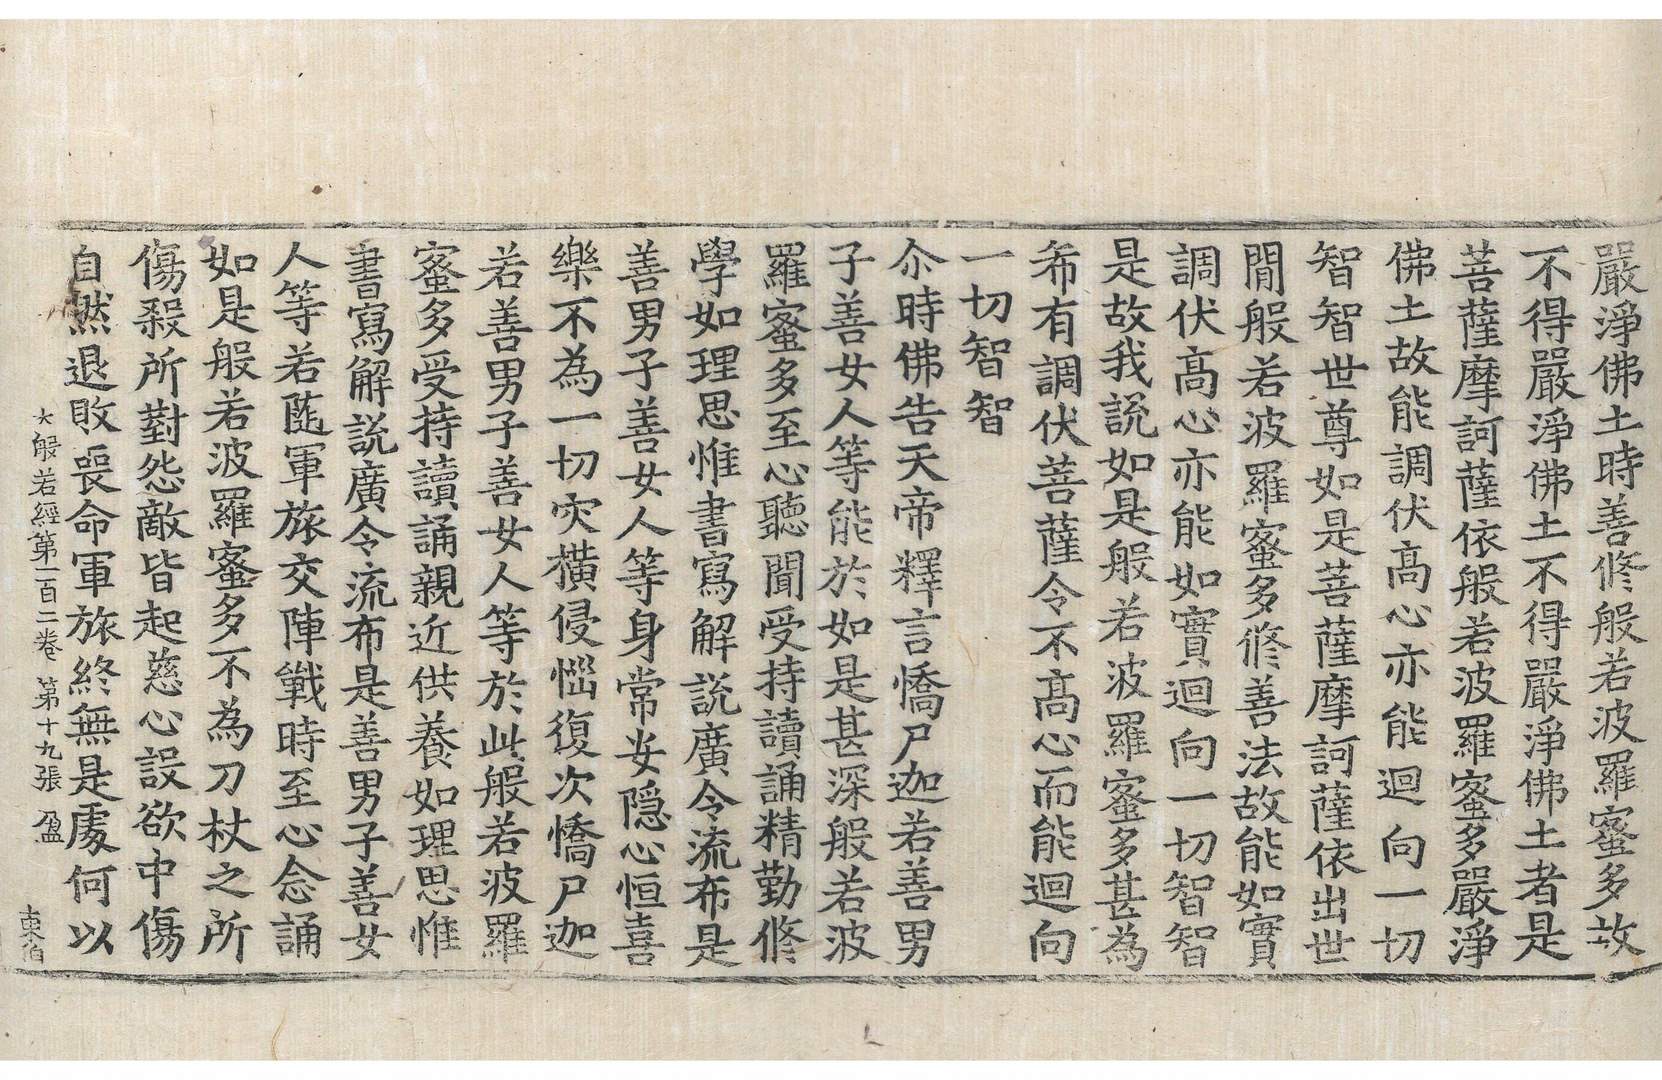 嚴淨佛土時善修般若波羅蜜多故
不得嚴淨佛土不得嚴淨佛土者是
菩薩摩訶薩依般若波羅蜜多嚴淨
佛土故能調伏高心亦能迴向一切
智智世尊如是菩薩摩訶薩依出世
閒般若波羅蜜多修善法故能如實
調伏高心亦能如實迴向一切智智
是故我說如是般若波羅蜜多甚為
希有調伏菩薩令不高心而能迴向
一切智智
尒時佛告天帝釋言憍尸迦若善男
子善女人等能於如是甚深般若波
羅蜜多至心聽聞受持讀誦精勤修
學如理思惟書寫解說廣令流布是
善男子善女人等身常安隱心恒喜
樂不為一切灾橫侵惱復次憍尸迦
若善男子善女人等於此般若波羅
蜜多受持讀誦親近供養如理思惟
書寫解說廣令流布是善男子善女
人等若随軍旅交陣戰時至心念誦
如是般若波羅蜜多不為刀杖之所
傷殺所對怨敵皆起慈心設欲中傷
自然退敗喪命軍旅終無是處何以
大般若經第一百二卷 第十九張 盈 東伯